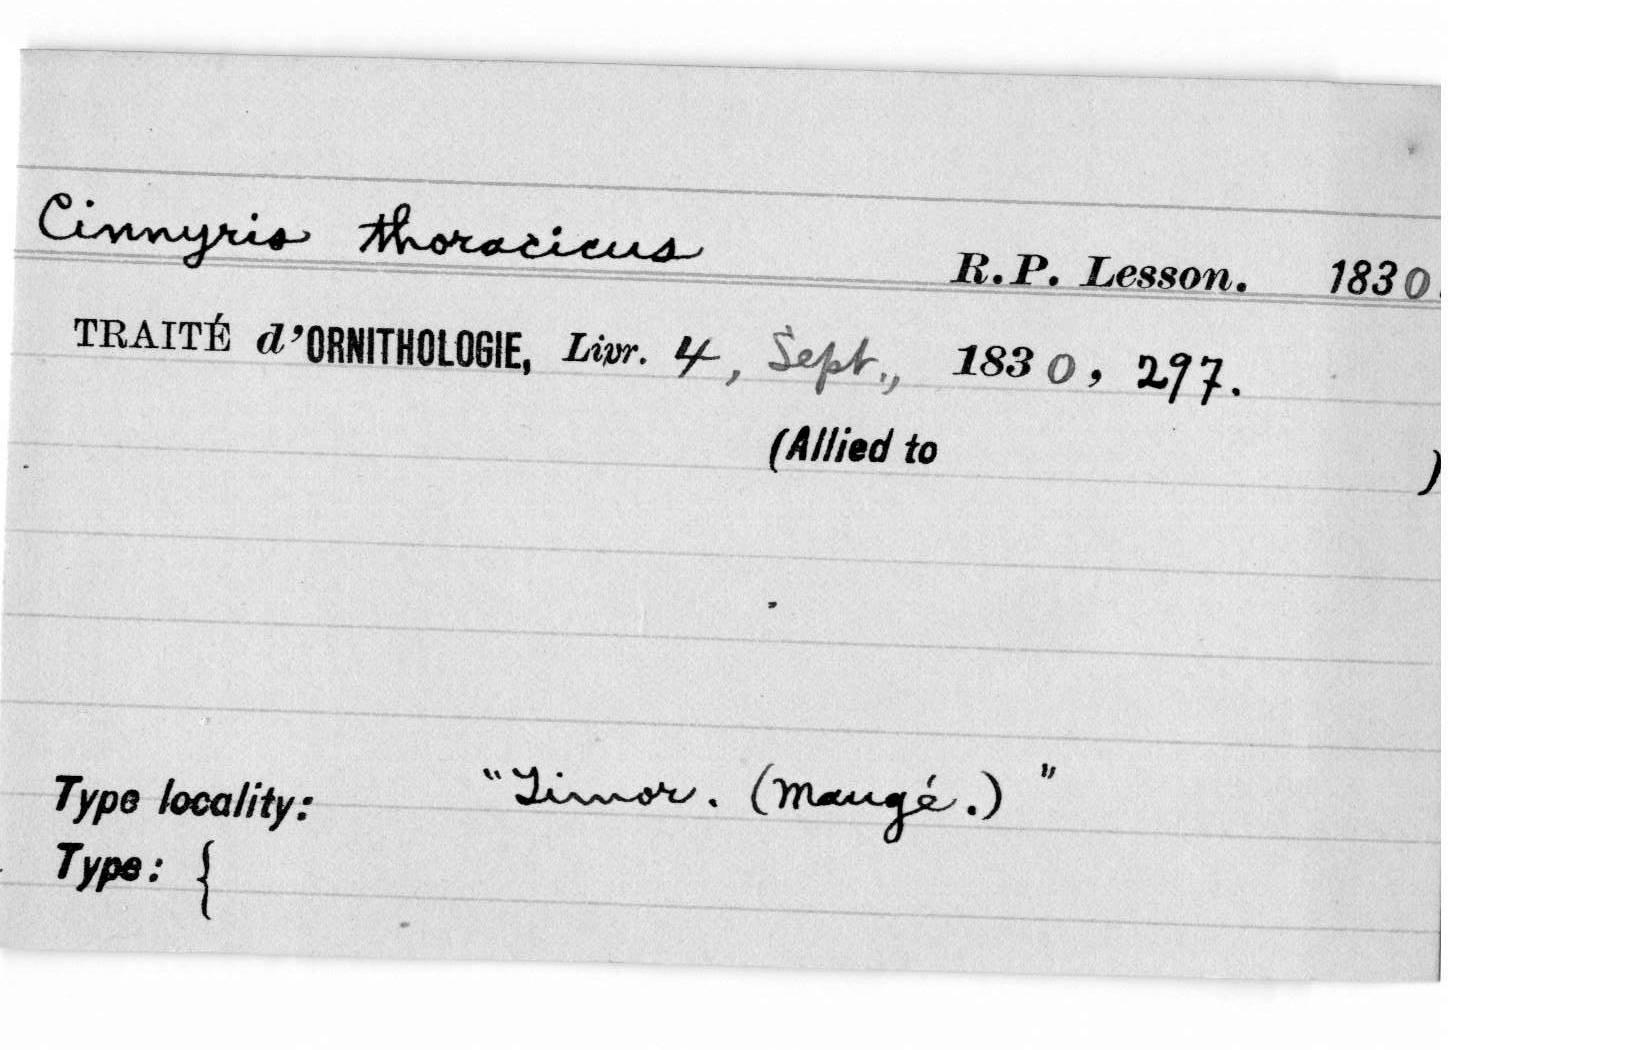 Cinnyris thoracicus R.P. Lesson. 1830.
TRAITÉ d'ORNITHOLOGIE, Livr. 4, Sept., 1830, 297.
(Allied to )
Type locality: "Timor. (Maugé.)"
Type: {